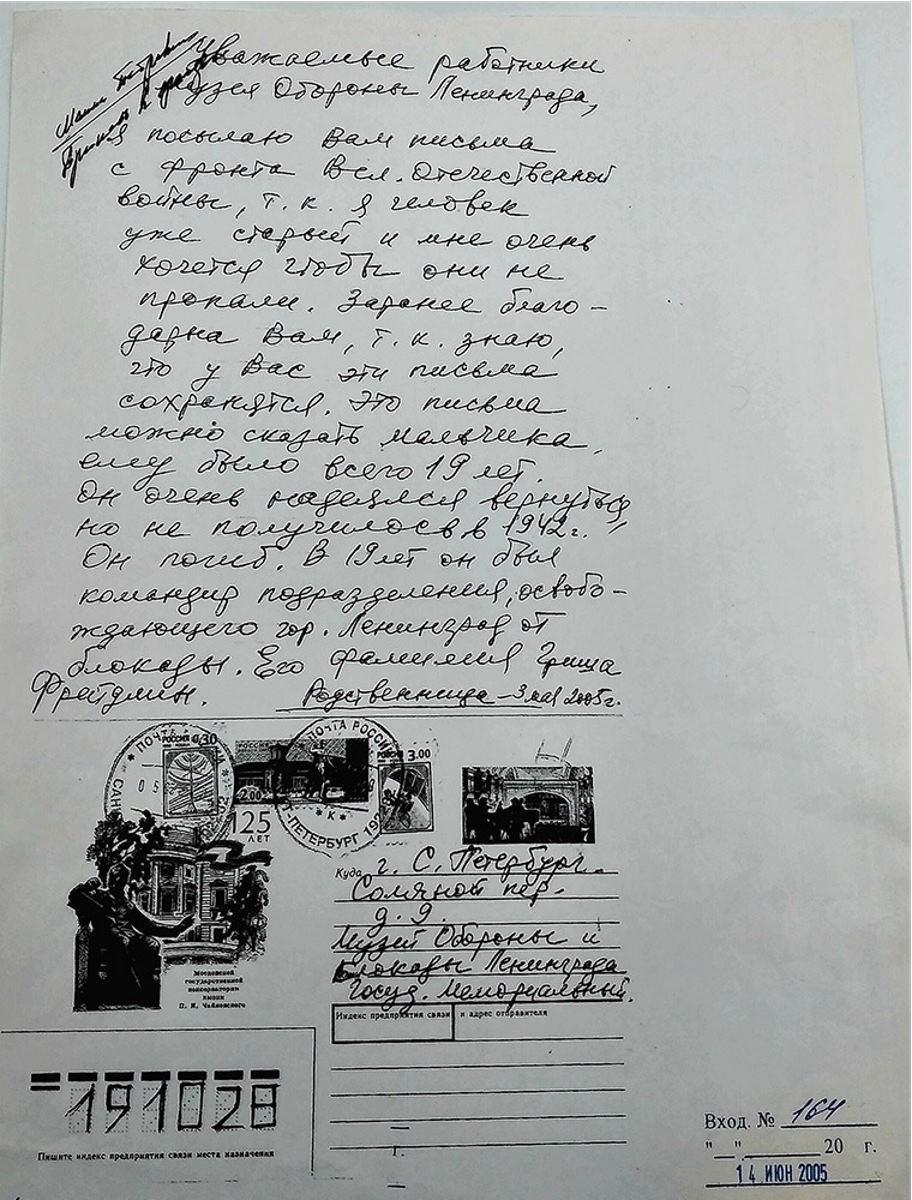 Уважаемые работники
музея Обороны Ленинграда,
я посылаю Вам письма
с фронта Вел. Отечественной
войны, т. к. я человек
уже старый и мне очень
хочется чтобы они не
пропали. Заранее благо-
дарна Вам, т. к. знаю,
что у Вас эти письма
сохранятся. Это письма
можно сказать мальчика,
ему было всего 19 лет.
Он очень надеялся вернуться,
но не получилось в 1942 г.
Он погиб. В 19 лет он был
командир подразделения, освобо-
ждающего гор. Ленинград от
блокады. Его фамилия Гриша
Фрейдлин. Родственница – 3 мая 2005 г.
ПОЧТА РОССИИ
РОССИЯ 0,30
РОССИЯ
2.00
РОССИЯ 3.00
125
ЛЕТ
С.-ПЕТЕРБУРГ
Московской
государственной
консерватории
имени
П. И. Чайковского
Куда г. С. Петербург.
Соляной пер.
д. 9.
Музей Обороны и
Блокады Ленинграда
Госуд. Мемориальный.
Индекс предприятия связи и адрес отправителя
191028
Пишите индекс предприятия связи места назначения
Вход. № 164
"__" ________ 20 г.
14 ИЮН 2005